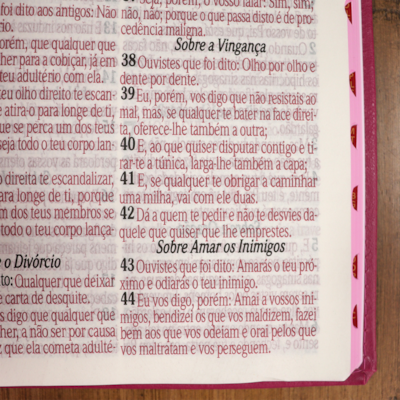 foi dito aos antigos: Não
rio.
orém, que qualquer que
lher para a cobiçar, já em
teu adultério com ela.
teu olho direito te escan-
e atira-o para longe de ti,
que se perca um dos teus
seja todo o teu corpo lan-
direita te escandalizar,
para longe de ti, porque
um dos teus membros se
todo o teu corpo lança-
e o Divórcio
to: Qualquer que deixar
e carta de desquite.
digo que qualquer que
lher, a não ser por causa
z que ela cometa adulté-
Seja, porém, o vosso falar: Sim, sim;
não, não; porque o que passa disto é de pro-
cedência maligna.
Sobre a Vingança
38 Ouvistes que foi dito: Olho por olho e
dente por dente.
39 Eu, porém, vos digo que não resistais ao
mal, mas, se qualquer te bater na face direi-
ta, oferece-lhe também a outra;
40 E, ao que quiser disputar contigo e ti-
rar-te a túnica, larga-lhe também a capa;
41 E, se qualquer te obrigar a caminhar
uma milha, vai com ele duas.
42 Dá a quem te pedir e não te desvies da-
quele que quiser que lhe emprestes.
Sobre Amar os Inimigos
43 Ouvistes que foi dito: Amarás o teu pró-
ximo e odiarás o teu inimigo.
44 Eu vos digo, porém: Amai a vossos ini-
migos, bendizei os que vos maldizem, fazei
bem aos que vos odeiam e orai pelos que
vos maltratam e vos perseguem.